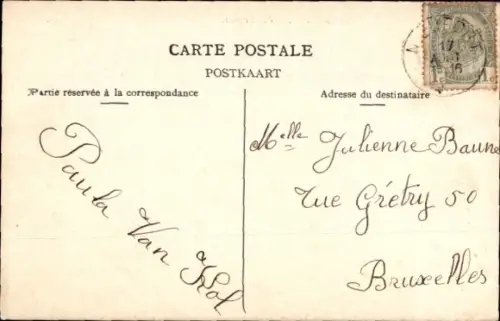 CARTE POSTALE
POSTKAART
Partie réservée à la correspondance
Adresse du destinataire
Paula Van Kol
Melle Julienne Baune
rue Grétry 50
Bruxelles